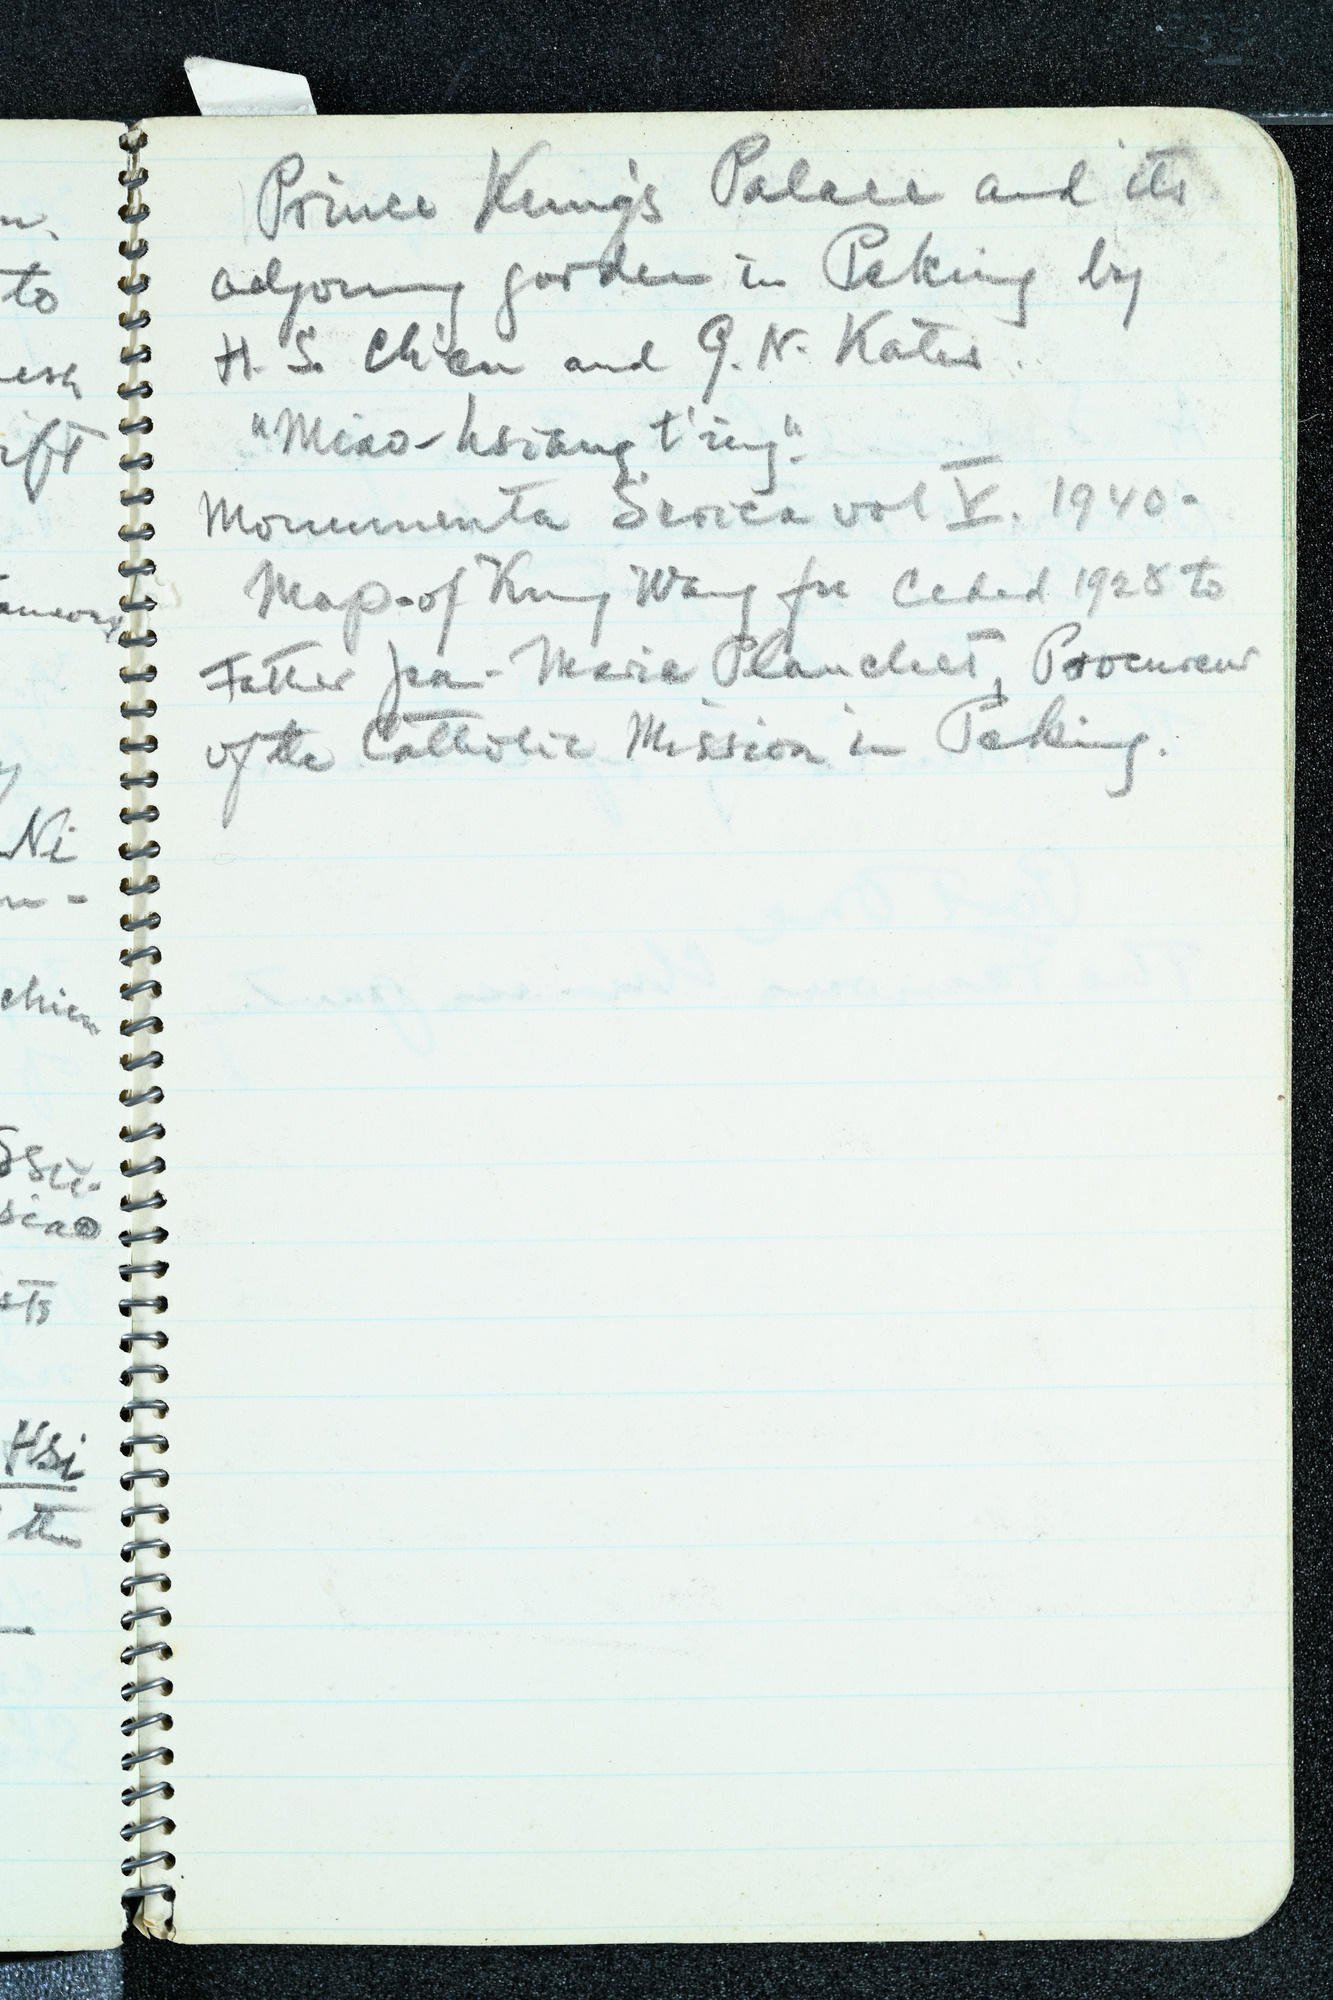 Prince Kung's Palace and its
adjoning garden in Peking by
H. S. Ch'en and G. N. Kates.
"Miao-hsiang t'ing".
Monumenta Serica vol V. 1940-
Map of Kung Wang fu ceded 1928 to
Father Jean-Marie Planchet, Procureur
of the Catholic Mission in Peking.
n.
to
esh
ift
Ni
chien
Hsi
the